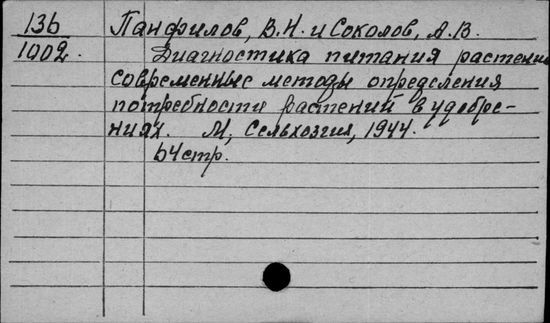 136 Панфилов, В.Н. и Соколов, А.В.
1002. Диагностика питания растений
современные методы определения
потребности растений в удобре-
ниях. М, Сельхозгиз, 1944.
64 стр.